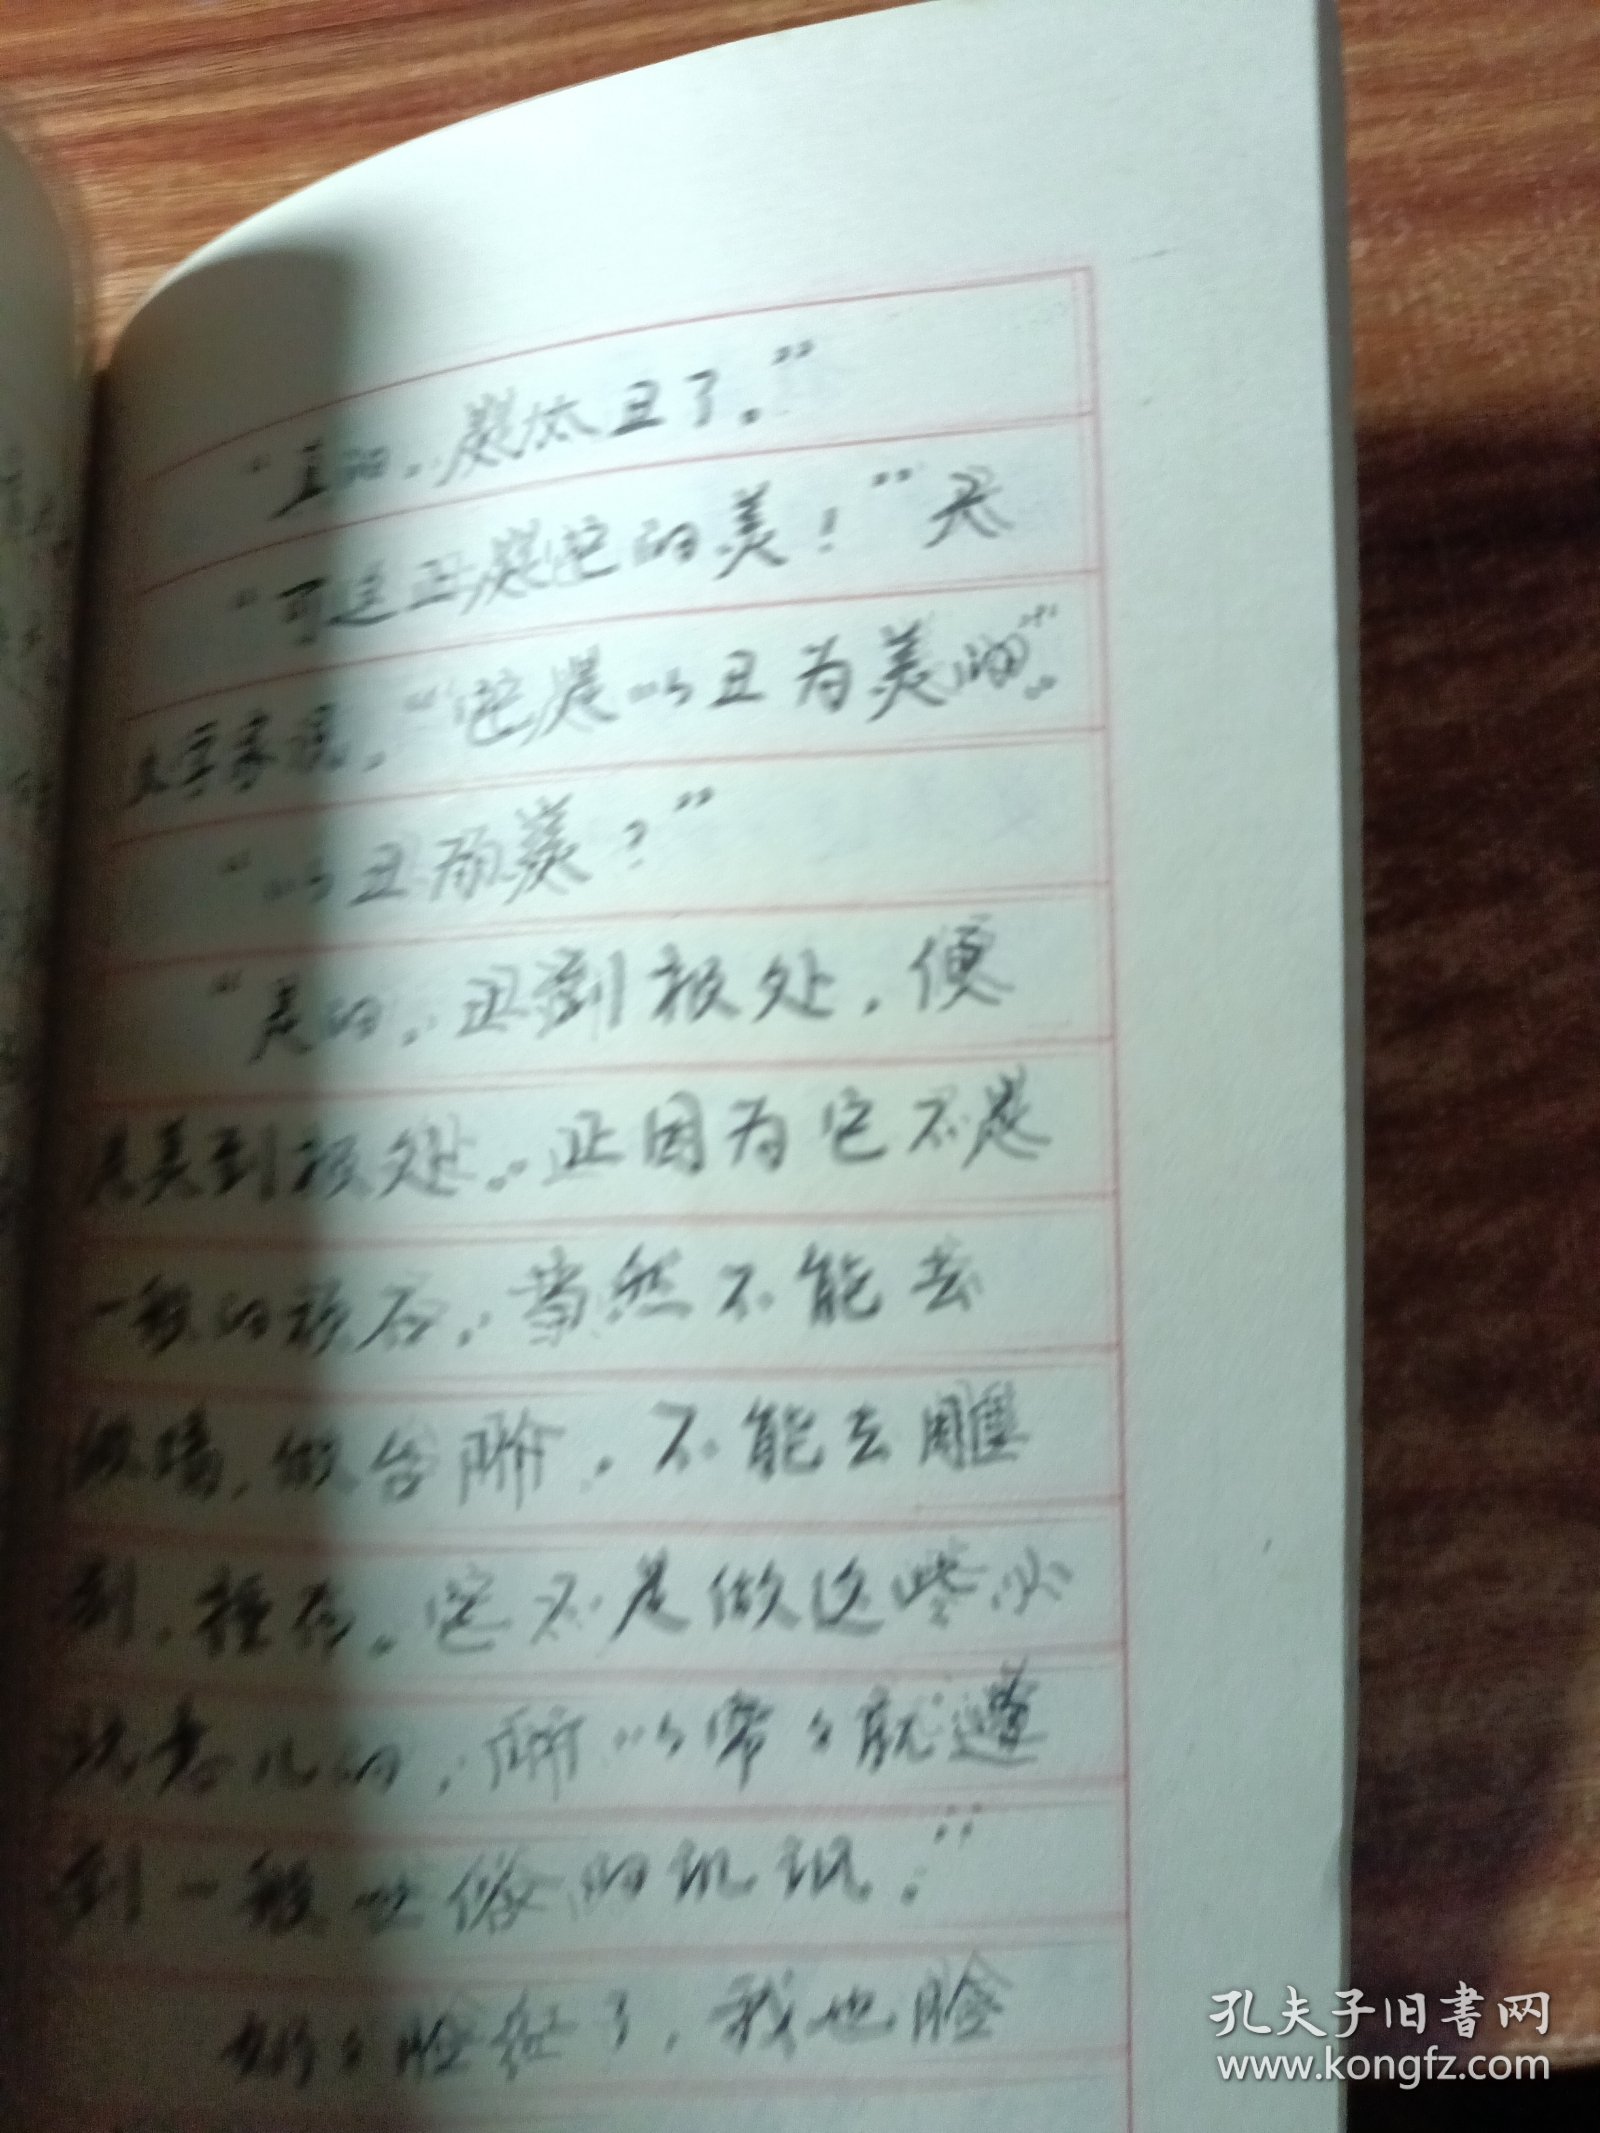 “真的，是太丑了。”
“可这正是它的美！”天
文学家说，“它是以丑为美的”。
“以丑为美？”
“是的，丑到极处，便
是美到极处。正因为它不是
一般的顽石，当然不能去
做墙，做台阶，不能去雕
刻，捶布。它不是做这些小
玩意儿的，所以常々就遭
到一般世俗的讥讽。”
奶々脸红了，我也脸
孔夫子旧书网
www.kongfz.com